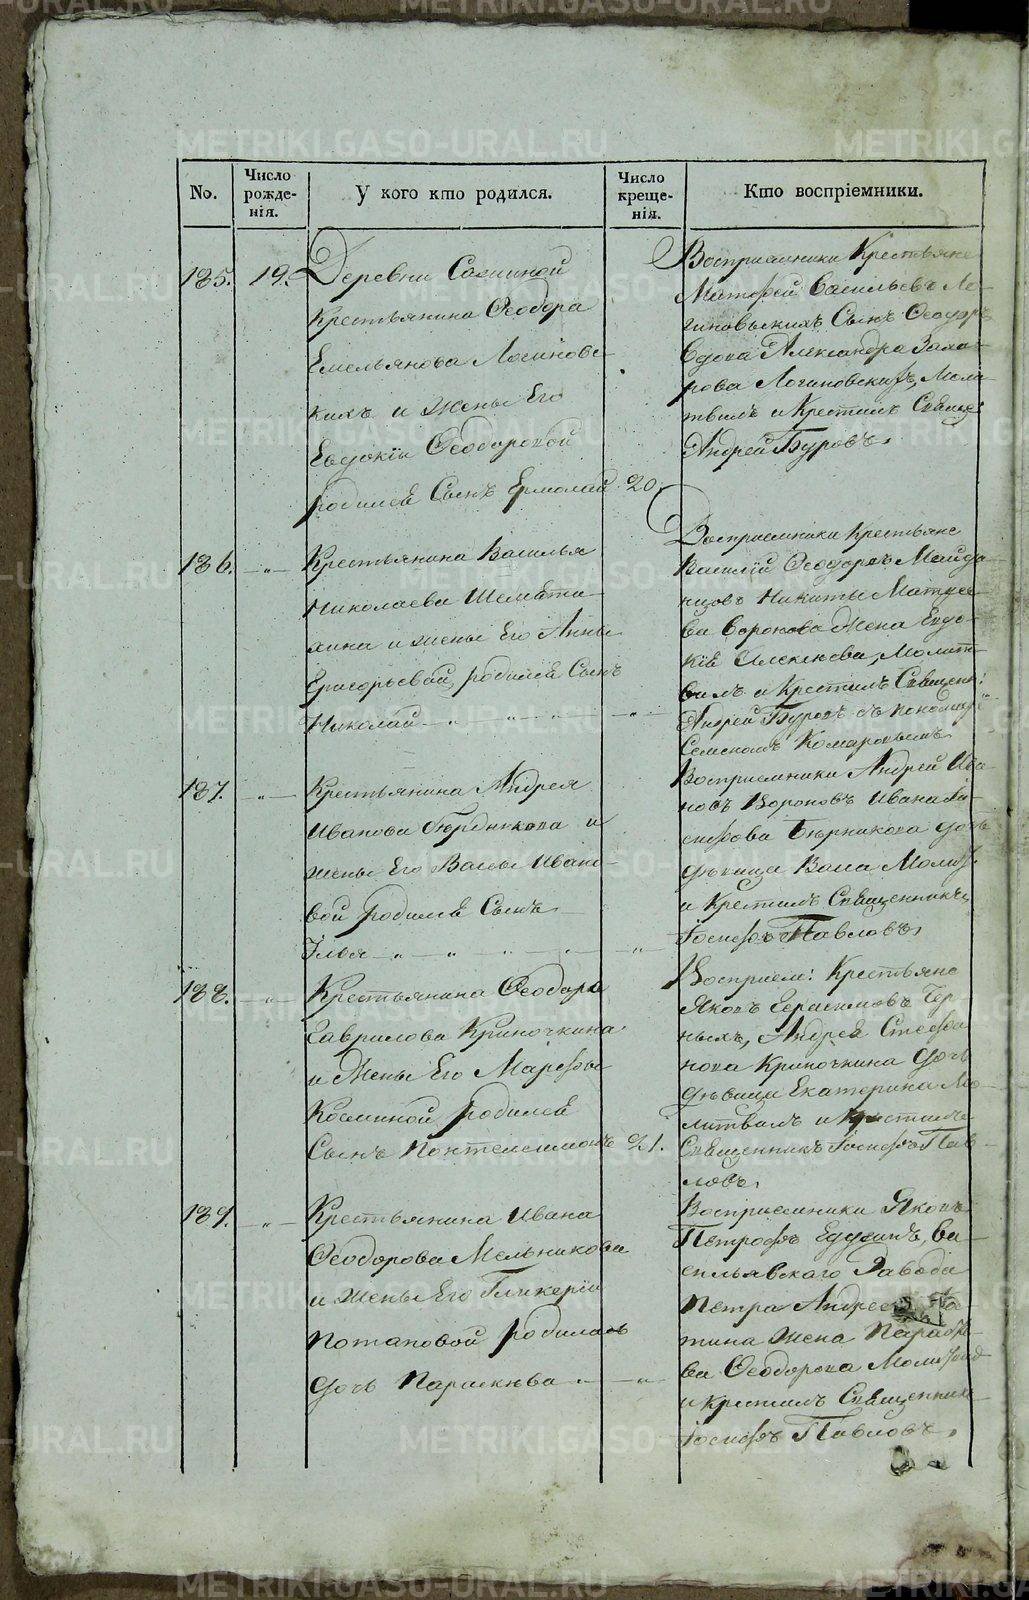 METRIKI.GASO-URAL.RU
No.
Число рожде-
нія.
У кого кто родился.
Число креще-
нія.
Кто воспріемники.
185. 19.
Деревни
Крестьянина Ѳеодора
Емельянова Логиновс-
кихъ и жены Его
Евдокіи Ѳеодоровой
родился Сынъ Ермолай 20.
Воспріемники Крестьяне
Матѳей Васильевъ Ло-
гиновскихъ Сынъ Ѳеодоръ
Вдова Александра Заха-
рова Логиновскихъ, Моли-
твилъ и Крестилъ Священ:
Андрей Буровъ.
186. „
Крестьянина Василья
Николаева
и жены Его Анны
Григорьевой, родился Сынъ
Николай „ „ „ „
Воспріемники Крестьяне
Василій Ѳеодоровъ
Никиты Матвее-
ва Воронова Жена Евдо-
кія Алексеева, Молит-
вилъ и Крестилъ Священ:
Андрей Буровъ съ пономаре
Комаровымъ.
187. „
Крестьянина Андрея
Иванова Бердникова и
жены Его Вассы Ивано-
вой родился Сынъ
Илья „ „ „ „ „
Воспріемники Андрей Ива-
новъ Вороновъ Ивана
дочь
дѣвица Васса Молит.
и Крестилъ Священникъ
Іосифъ Павловъ.
188. „
Крестьянина Ѳеодора
Гаврилова Криночкина
и Жены Его Марѳы
Косминой родился
Сынъ Пантелеимонъ 21.
Воспріем: Крестьяне
Яковъ Герасимовъ Чер-
ныхъ, Андрея Стефа
нова Криночкина дочь
дѣвица Екатерина Мо-
литвилъ и Крестилъ
Священникъ Іосифъ Пав-
ловъ.
189. „
Крестьянина Ивана
Ѳеодорова Мельникова
и жены Его Гликеріи
Потаповой родилась
дочь Параскева „ „
Воспріемники Яковъ
Петровъ Ва-
сильявскаго Завода
Петра Андреева
жена Параске-
ва Ѳеодорова Молитвилъ
и крестилъ Священникъ
Іосифъ Павловъ.